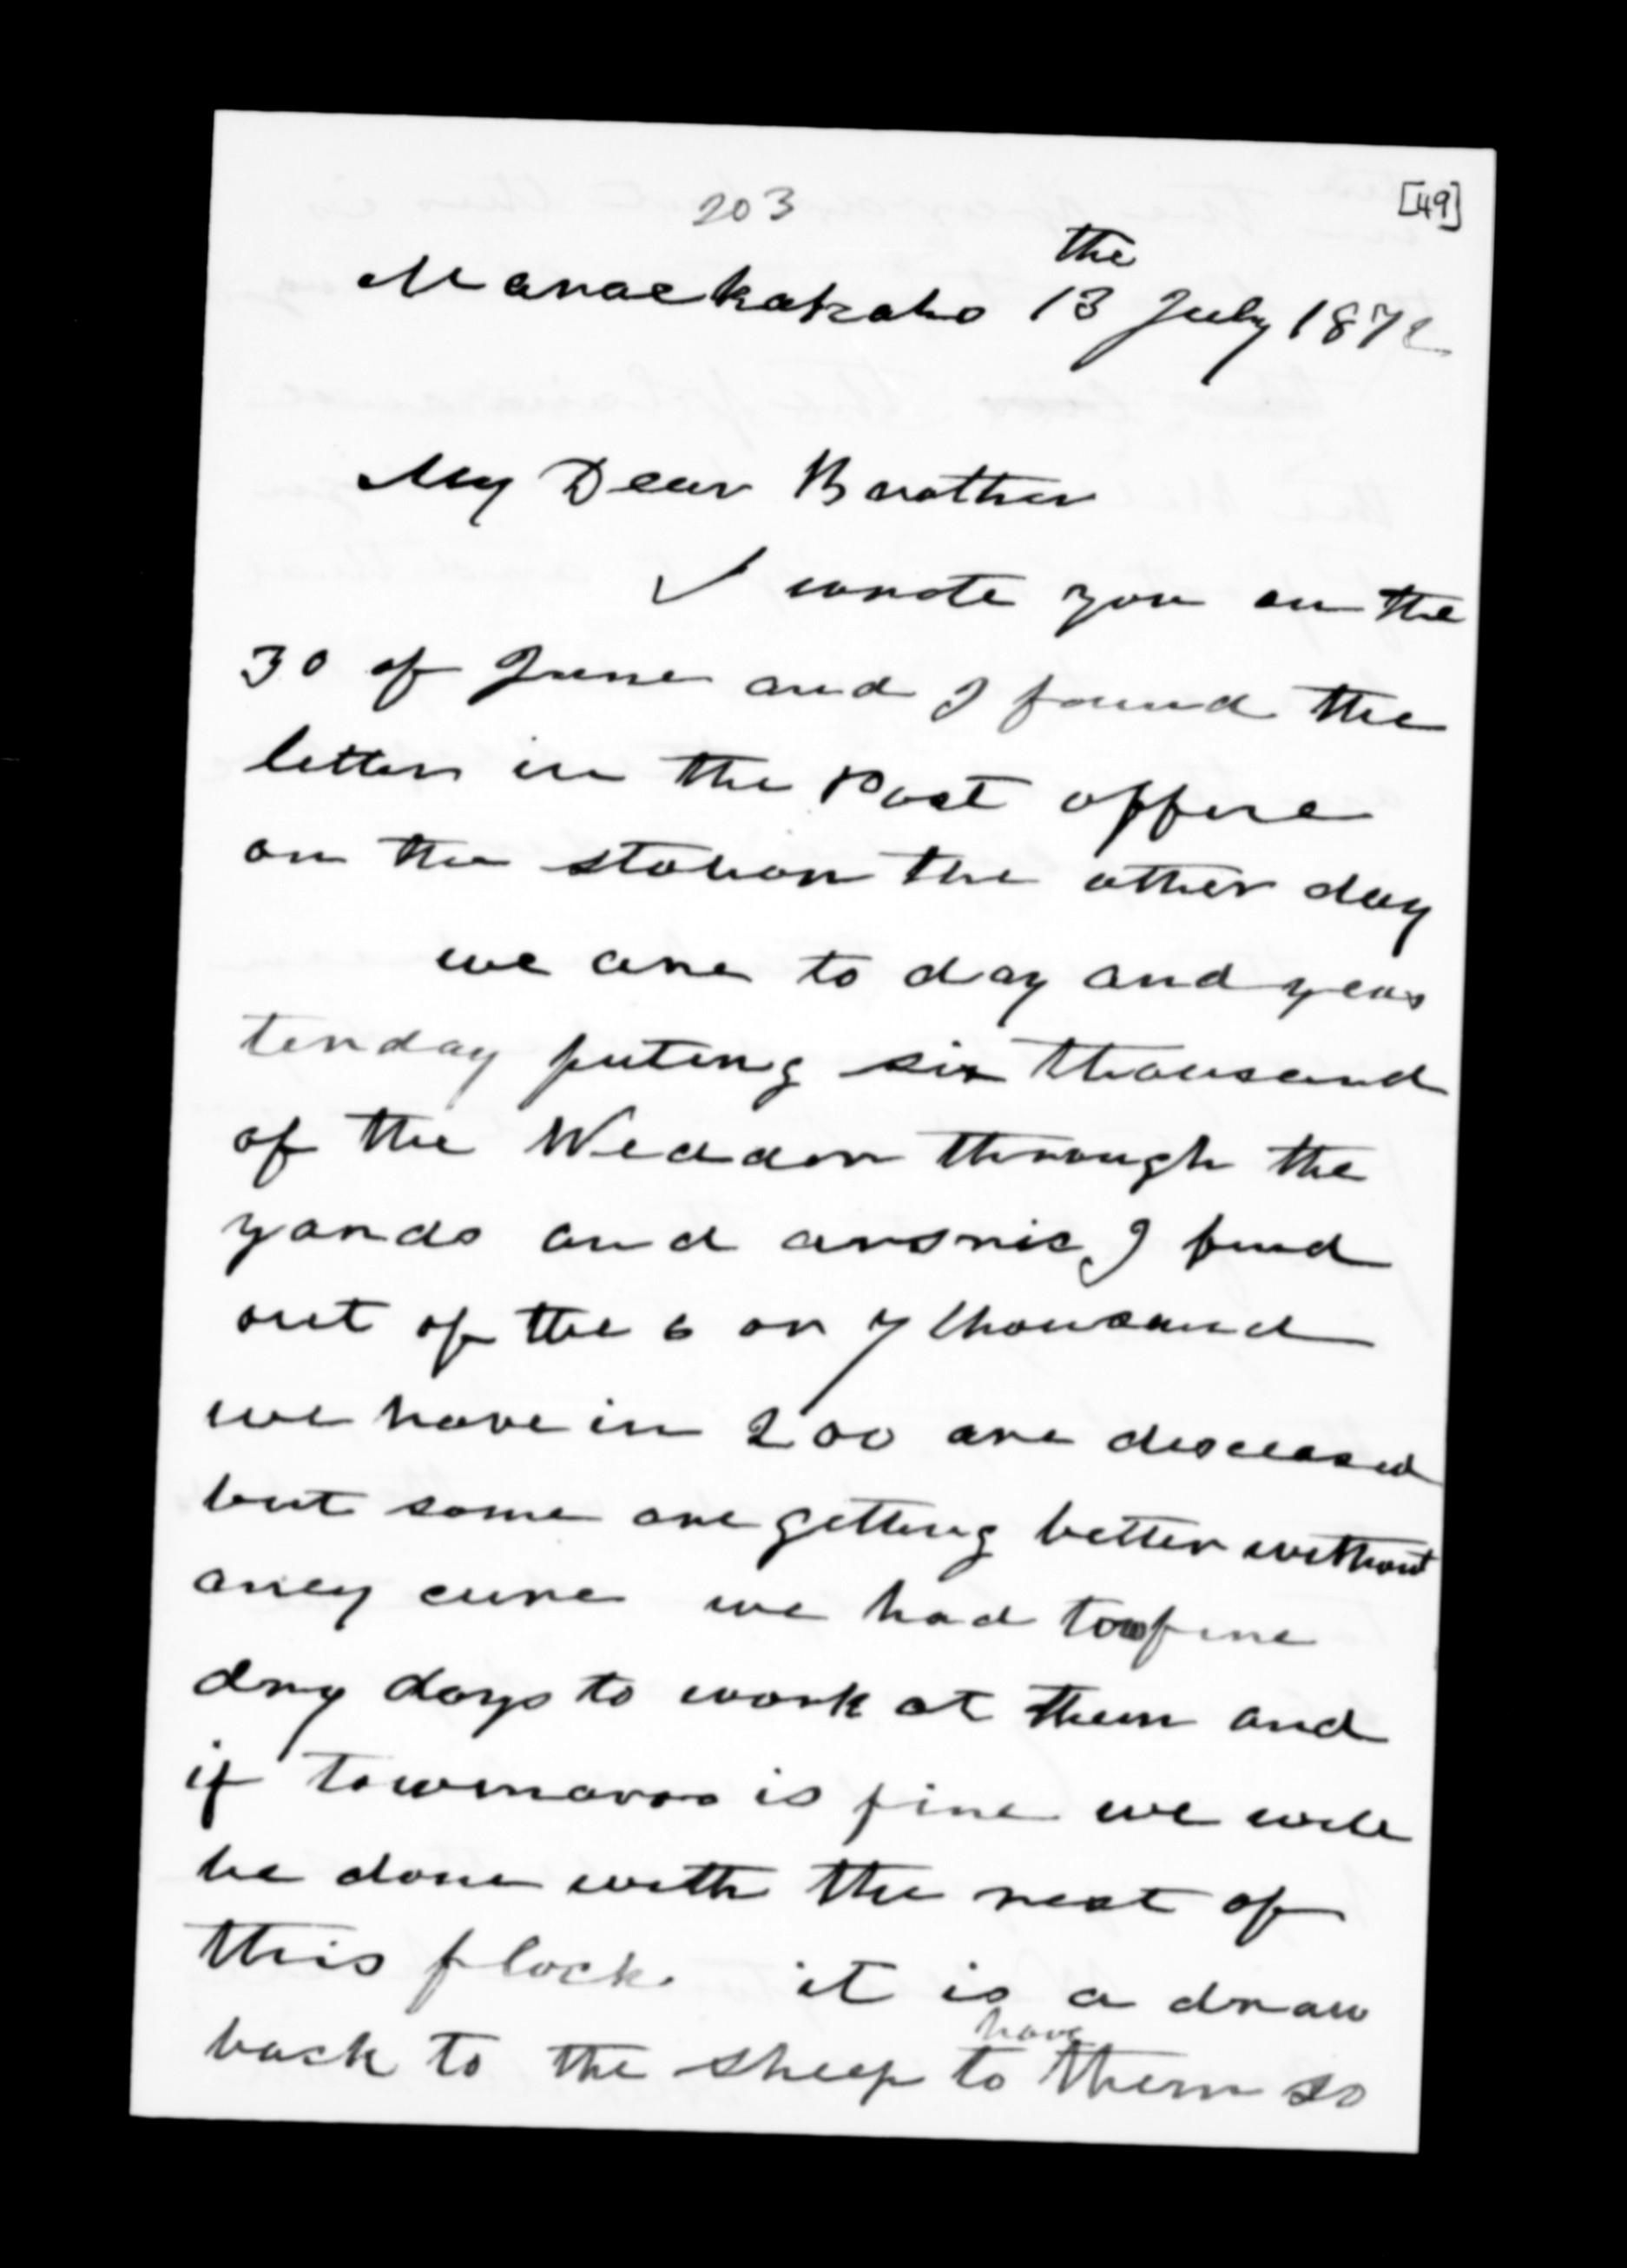 203
[49]
the
Manaekakaho 13 July 1872
My Dear Brother
I wrote you on the
30 of June and I found the
letter in the Post offire
on the station the other day
we are to day and yeas
terday puting six thousand
of the Weddor through the
yards and arsnic I find
out of the 6 or 7 thousand
we have in 200 are desceased
but some are getting better without
aney cure we had too fine
dry days to work at them and
if towmoroo is fine we will
be done with the rest of
this flock it is a draw
have
back to the sheep to them so